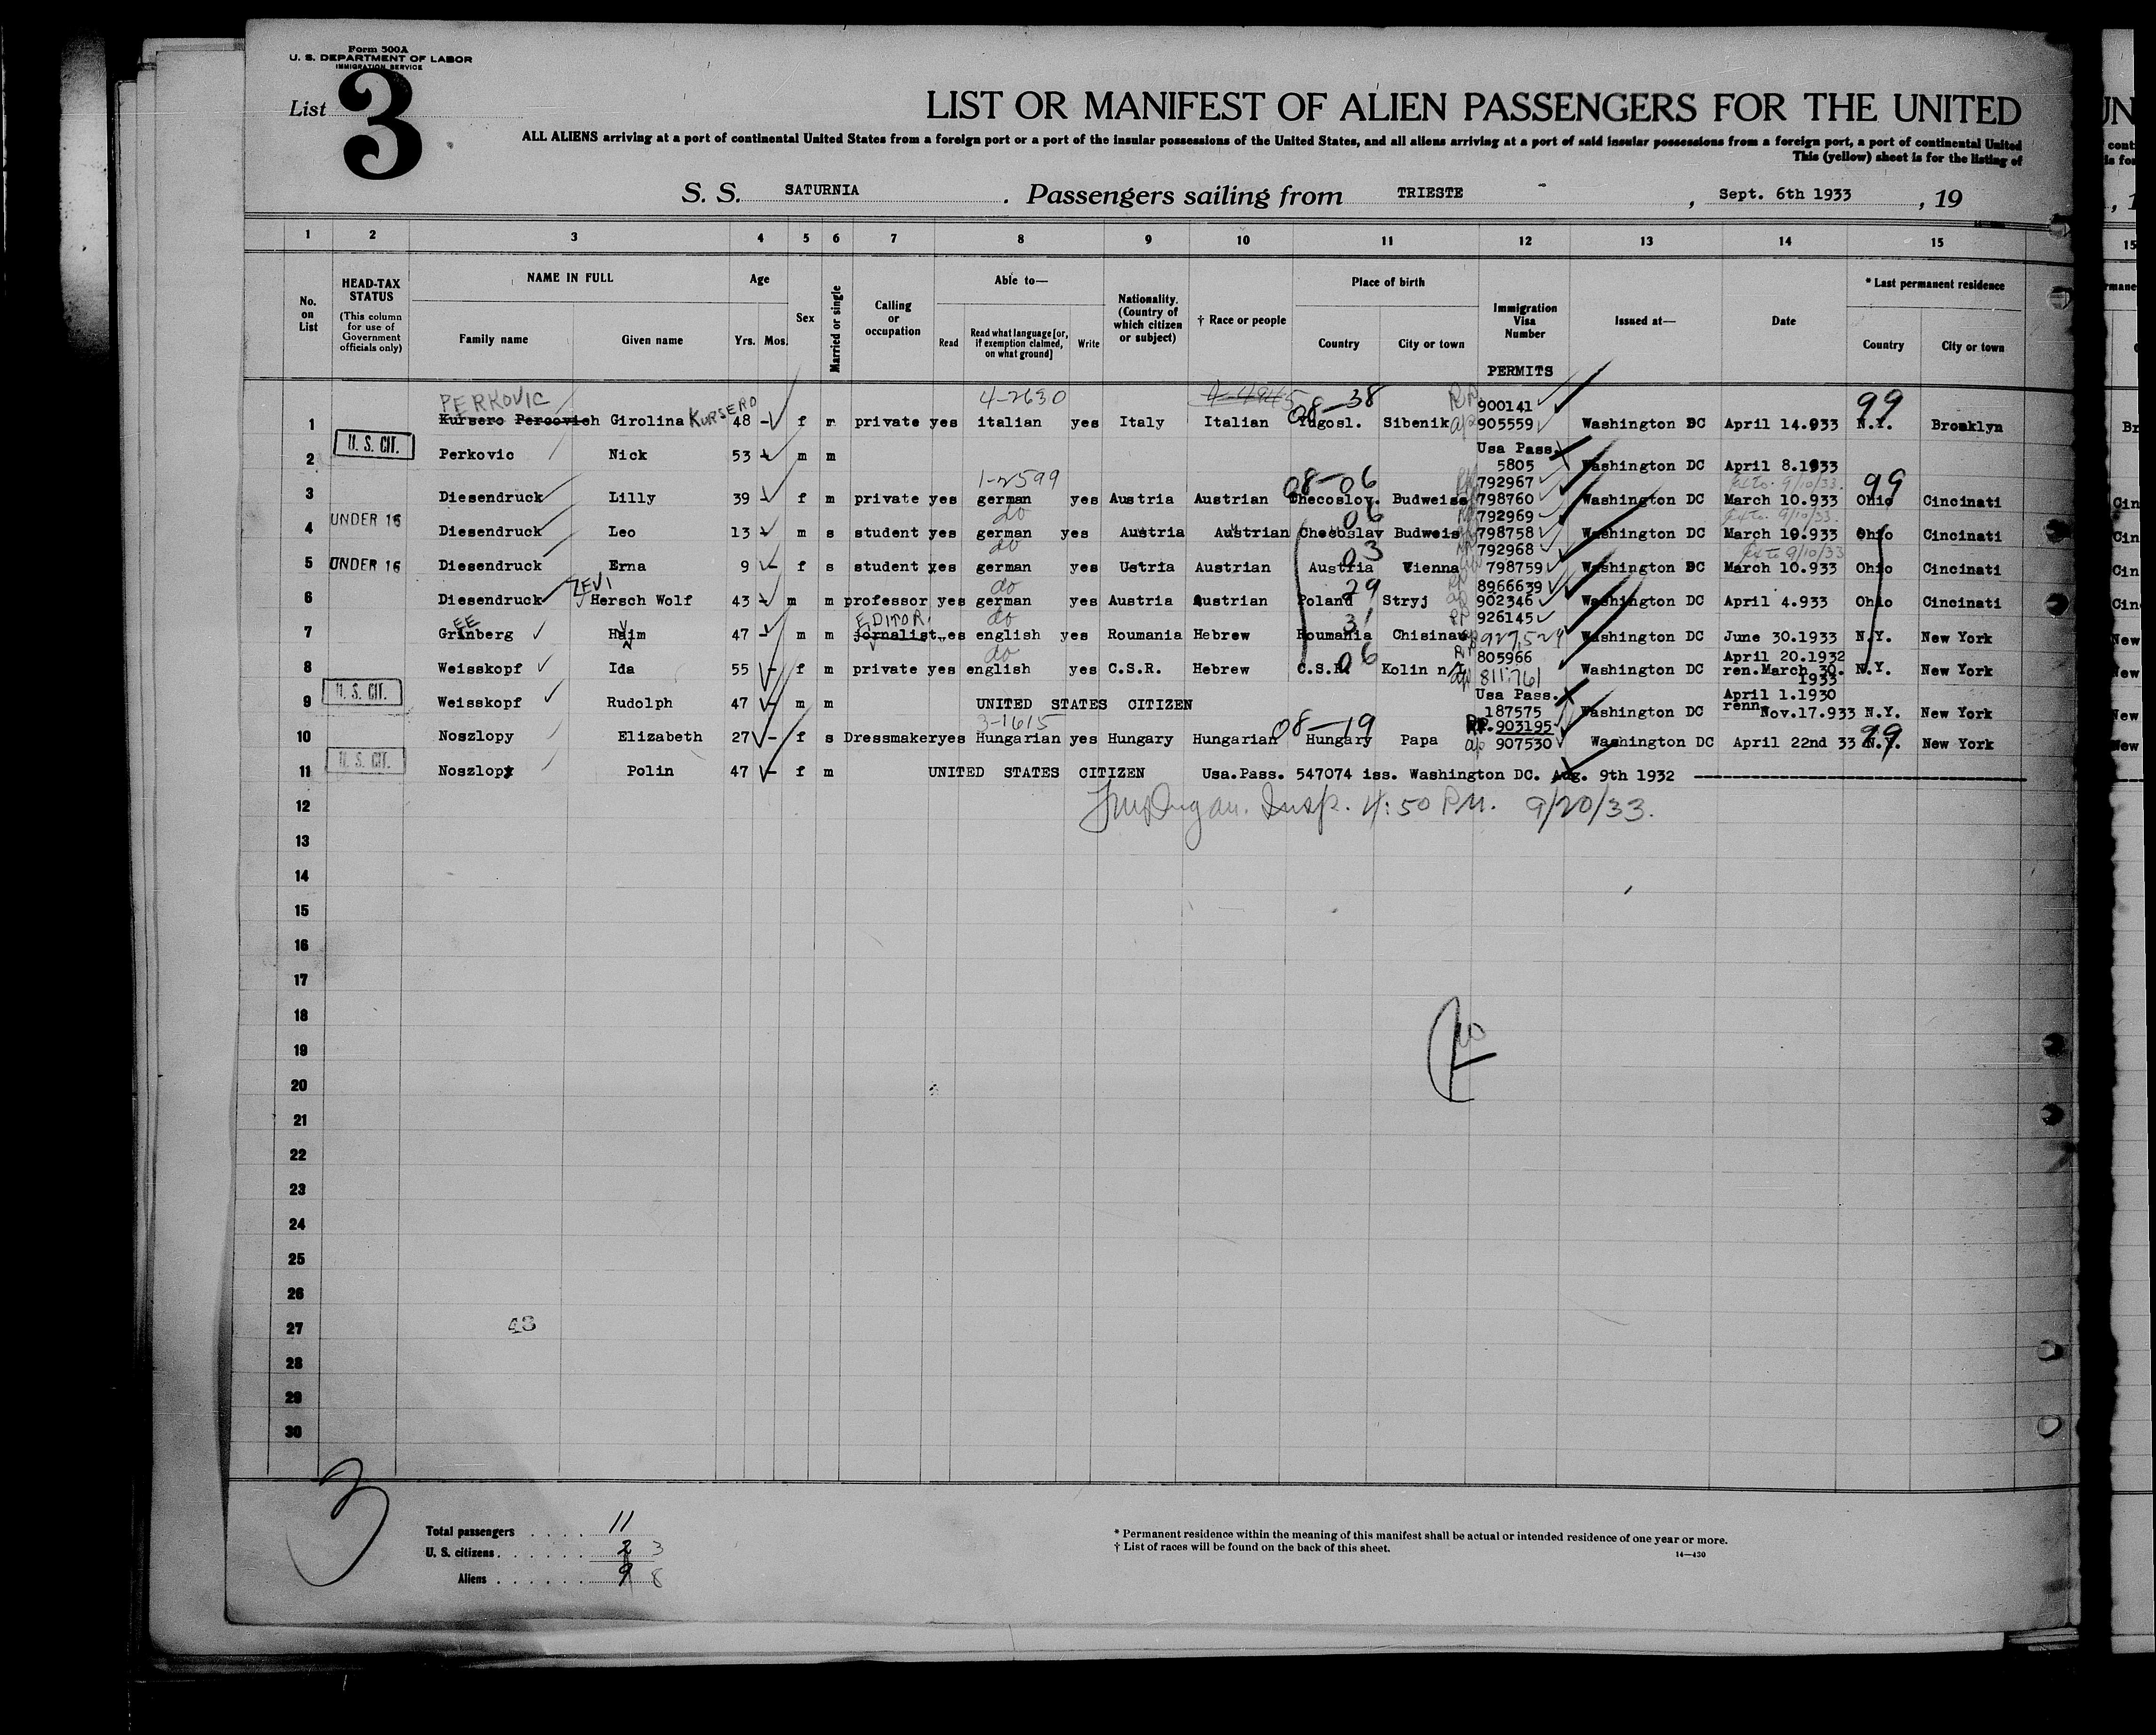 Form 500A
U. S. DEPARTMENT OF LABOR
IMMIGRATION SERVICE
List 3
LIST OR MANIFEST OF ALIEN PASSENGERS FOR THE UNITED
ALL ALIENS arriving at a port of continental United States from a foreign port or a port of the insular possessions of the United States, and all aliens arriving at a port of said insular possessions from a foreign port, a port of continental United
This (yellow) sheet is for the listing of
S. S. SATURNIA . Passengers sailing from TRIESTE , Sept. 6th 1933 , 19
1 2 3 4 5 6 7 8 9 10 11 12 13 14 15
No. on List
HEAD-TAX STATUS (This column for use of Government officials only)
NAME IN FULL Family name Given name
Age Yrs. Mos.
Sex
Married or single
Calling or occupation
Able to— Read Read what language [or, if exemption claimed, on what ground] Write
Nationality. (Country of which citizen or subject)
† Race or people
Place of birth Country City or town
Immigration Visa Number PERMITS
Issued at—
Date
* Last permanent residence Country City or town
PERKOVIC 4-2630 08-38 900141 99
1 Kursero Percovich Girolina KURSERO 48 - f m private yes italian yes Italy Italian Yugosl. Sibenik 905559 Washington DC April 14.933 N.Y. Brooklyn
U. S. CIT. Usa Pass.
2 Perkovic Nick 53 m m 5805 Washington DC April 8.1933
1-2599 08-06 792967 Ext to 9/10/33. 99
3 Diesendruck Lilly 39 f m private yes german yes Austria Austrian Checoslov. Budweiss 798760 Washington DC March 10.933 Ohio Cincinati
UNDER 16 do 06 792969 Ext to 9/10/33.
4 Diesendruck Leo 13 m s student yes german yes Austria Austrian Checoslav Budweis 798758 Washington DC March 10.933 Ohio Cincinati
do 03 792968 Ext to 9/10/33
5 UNDER 16 Diesendruck Erna 9 f s student yes german yes Ustria Austrian Austria Vienna 798759 Washington DC March 10.933 Ohio Cincinati
ZEVI do 29 8966639
6 Diesendruck Hersch Wolf 43 m m professor yes german yes Austria Austrian Poland Stryj 902346 Washington DC April 4.933 Ohio Cincinati
EE EDITOR do 31 926145
7 Grinberg Haim 47 - m m jornalist yes english yes Roumania Hebrew Roumania Chisinau 927,529 Washington DC June 30.1933 N.Y. New York
do 06 805966 April 20.1932
8 Weisskopf Ida 55 - f m private yes english yes C.S.R. Hebrew C.S.R. Kolin n/ 811761 Washington DC ren.March 30. 1933 N.Y. New York
U. S. CIT. Usa Pass. April 1.1930
9 Weisskopf Rudolph 47 - m m UNITED STATES CITIZEN 187575 Washington DC renn. Nov.17.933 N.Y. New York
3-1615 08-19 RP. 903195 99
10 Noszlopy Elizabeth 27 - f s Dressmaker yes Hungarian yes Hungary Hungarian Hungary Papa 907530 Washington DC April 22nd 33 N.Y. New York
U. S. CIT.
11 Noszlopy Polin 47 - f m UNITED STATES CITIZEN Usa.Pass. 547074 iss. Washington DC. Aug. 9th 1932
12 Insp. 4:50 P.M. 9/20/33.
13
14
15
16
17
18
19
20
21
22
23
24
25
26
27 43
28
29
30
3
Total passengers . . . . . 11
U. S. citizens . . . . . . . 2 3
Aliens . . . . . . . 9 8
* Permanent residence within the meaning of this manifest shall be actual or intended residence of one year or more.
† List of races will be found on the back of this sheet.
14—430